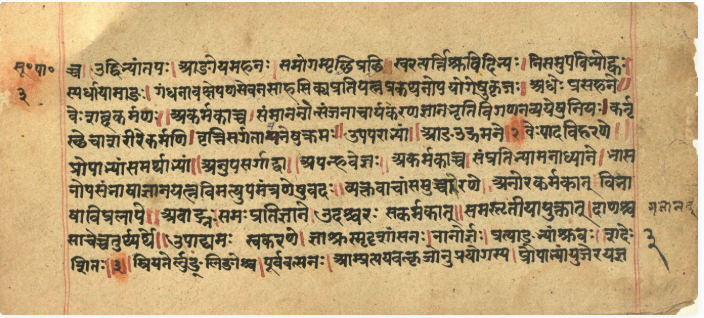 सू॰पा॰ च्च । उद्विभ्यांतपः । आङोयमहनः । समोगम्यृछिप्रछि स्वरत्यर्त्तिश्रुविदिभ्यः । निसमुपविभ्योह्वः
३ स्पर्धायामाङः । गंधनावक्षेपणसेवनसाहसिक्यप्रतियत्नप्रकथनोपयोगेषुकृञः । अधेः प्रसहने
वेः शब्दकर्मणः । अकर्मकाच्च । संमाननोत्संजनाचार्यकरणज्ञानभृतिविगणनव्ययेषुनियः । कर्तृ
स्थेचाशरीरेकर्मणि । वृत्तिसर्गतायनेषुक्रमः । उपपराभ्यां । आङउद्गमने २ वेः पादविहरणे
प्रोपाभ्यांसमर्थाभ्यां । अनुपसर्गाद्वा । अपन्हवेज्ञः । अकर्मकाच्च । संप्रतिभ्यामनाध्याने । भास
नोपसंभाषाज्ञानयत्नविमत्युपमंत्रणेषुवदः । व्यक्तवाचांसमुच्चारणे । अनोरकर्मकात् विभा
षाविप्रलापे । अवाद्ग्रः समः प्रतिज्ञाने । उदश्चरः सकर्मकात् । समस्तृतीयायुक्तात् । दाणश्च
साचेच्चतुर्थ्यर्थे । उपाद्यमः स्वकरणे । ज्ञाश्रुस्मृदृशांसनः । नानोर्ज्ञः । प्रत्याङ्भ्यांश्रुवः । शदेः ३
शितः ३ म्रियतेर्लुङ्लिङोश्च । पूर्ववत्सनः । आम्प्रत्ययवत्कृञोनुप्रयोगस्य । प्रोपाभ्यांयुजेरयज्ञ